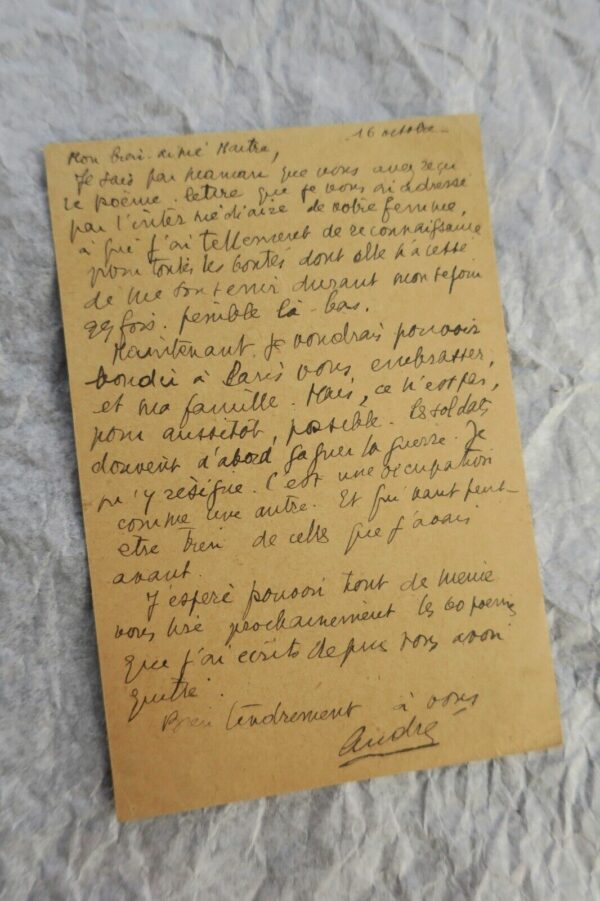 16 octobre
Mon bien-aimé Maître,
Je sais par maman que vous avez reçu
le poème-lettre que je vous ai adressé
par l'intermédiaire de votre femme,
à qui j'ai tellement de reconnaissance
pour toutes les bontés dont elle n'a cessé
de me soutenir durant mon séjour
qqfois pénible là-bas.
Maintenant je voudrais pouvoir
bondir à Paris vous embrasser,
et ma famille. Mais, ce n'est pas,
pour aussitôt, possible. Les soldats
doivent d'abord gagner la guerre. Je
m'y résigne. C'est une occupation
comme une autre. Et qui vaut peut-
être bien de celles que j'avais
avant.
J'espère pouvoir tout de même
vous lire prochainement les 60 poèmes
que j'ai écrits depuis vous avoir
quitté.
Bien tendrement à vous
André